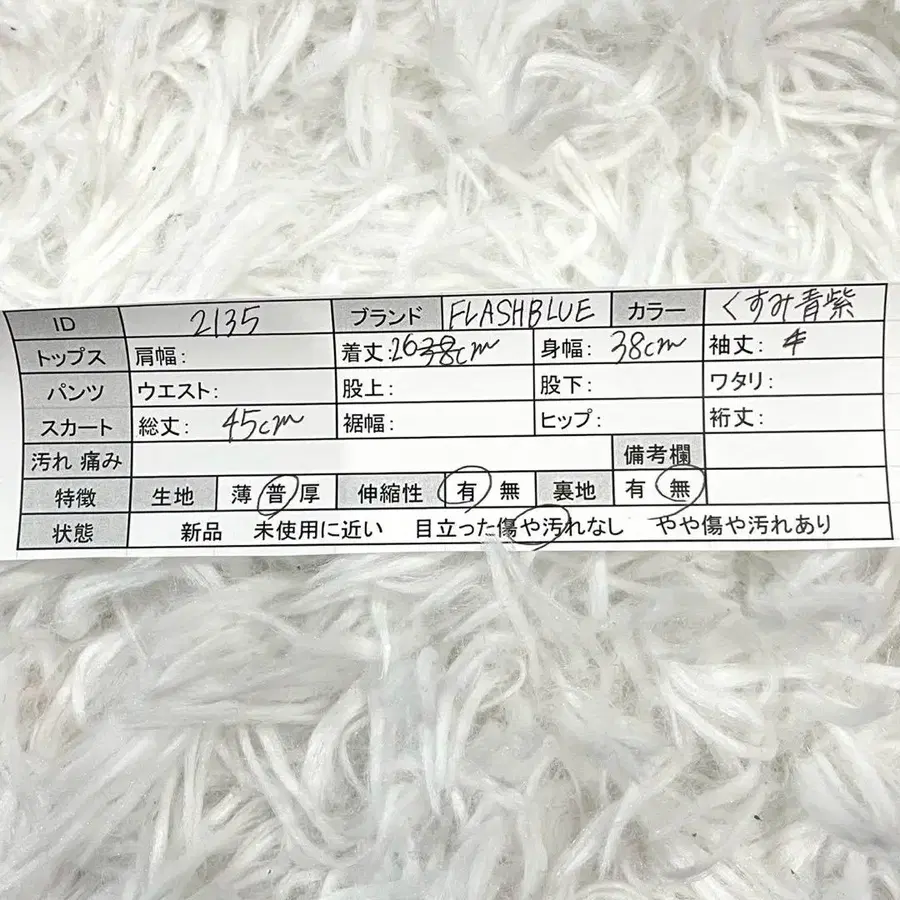 ID 2135 ブランド FLASHBLUE カラー くすみ青紫
トップス 肩幅: 着丈:26cm 身幅: 38cm 袖丈:
パンツ ウエスト: 股上: 股下: ワタリ:
スカート 総丈: 45cm 裾幅: ヒップ: 裄丈:
汚れ 痛み 備考欄
特徴 生地 薄 普 厚 伸縮性 有 無 裏地 有 無
状態 新品 未使用に近い 目立った傷や汚れなし やや傷や汚れあり